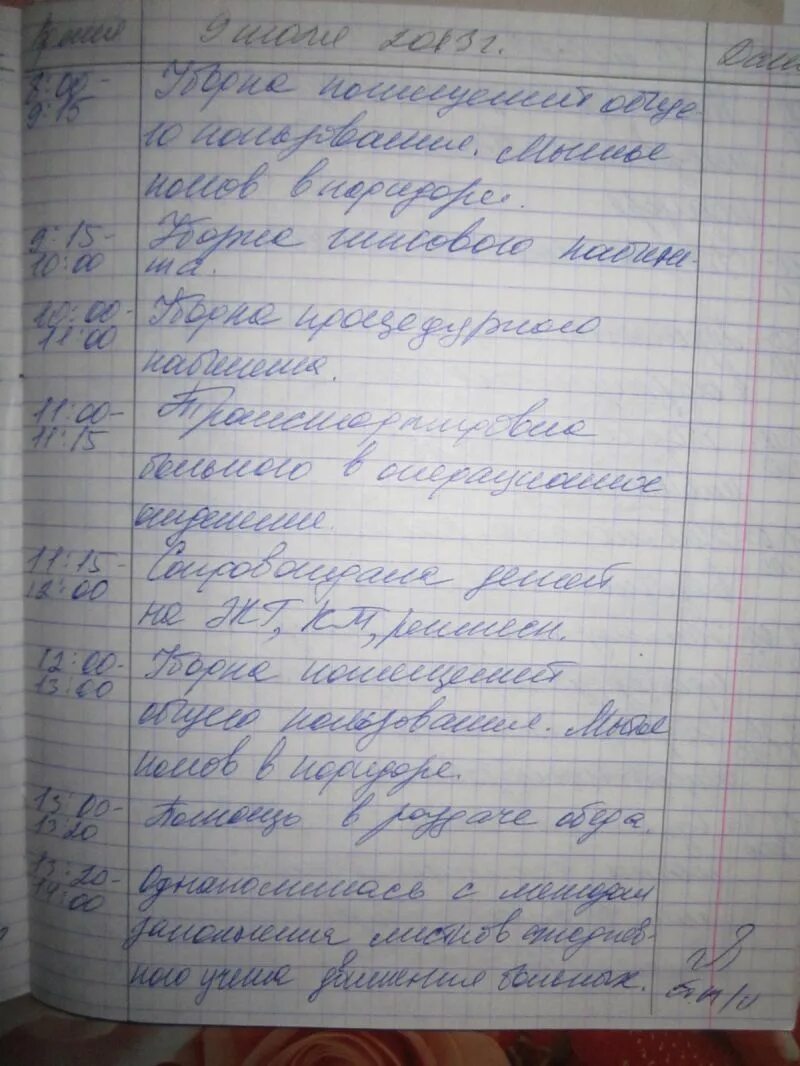 Время 9 июля 2013 г. Дата
8:00- Уборка помещений обще-
9:15 го пользования. Мытье
полов в коридоре.
9:15- Уборка гипсового кабине-
10:00 та.
10:00- Уборка процедурного
11:00 кабинета.
11:00- Транспортировка
11:15 больного в операционное
отделение.
11:15- Сопровождала детей
12:00 на ЭКГ, КТ, рентген.
12:00- Уборка помещений
13:00 общего пользования. Мытье
полов в коридоре.
13:00- Помощь в раздаче обеда.
13:20
13:20- Ознакомилась с методом
14:00 заполнения листков ежеднев-
ного учета движения больных.